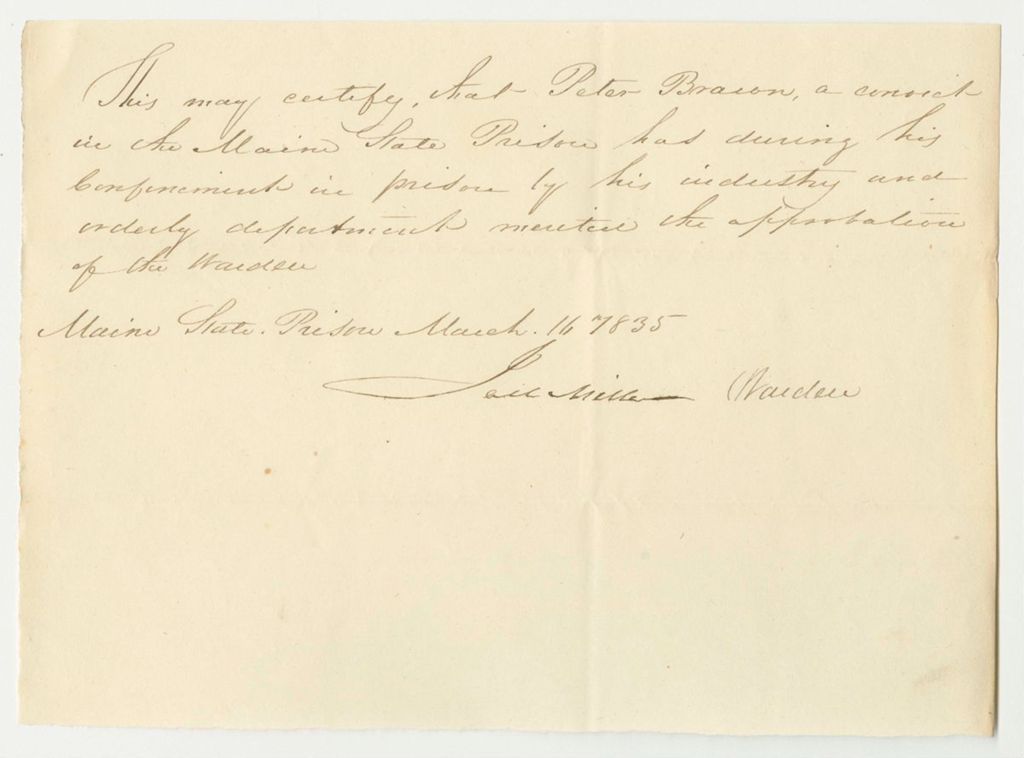 This may certify, that Peter Brawn, a convict
in the Maine State Prison has during his
Confinement in prison by his industry and
orderly department merited the approbation
of the Warden
Maine State. Prison March. 16 1835
Joel Miller Warden